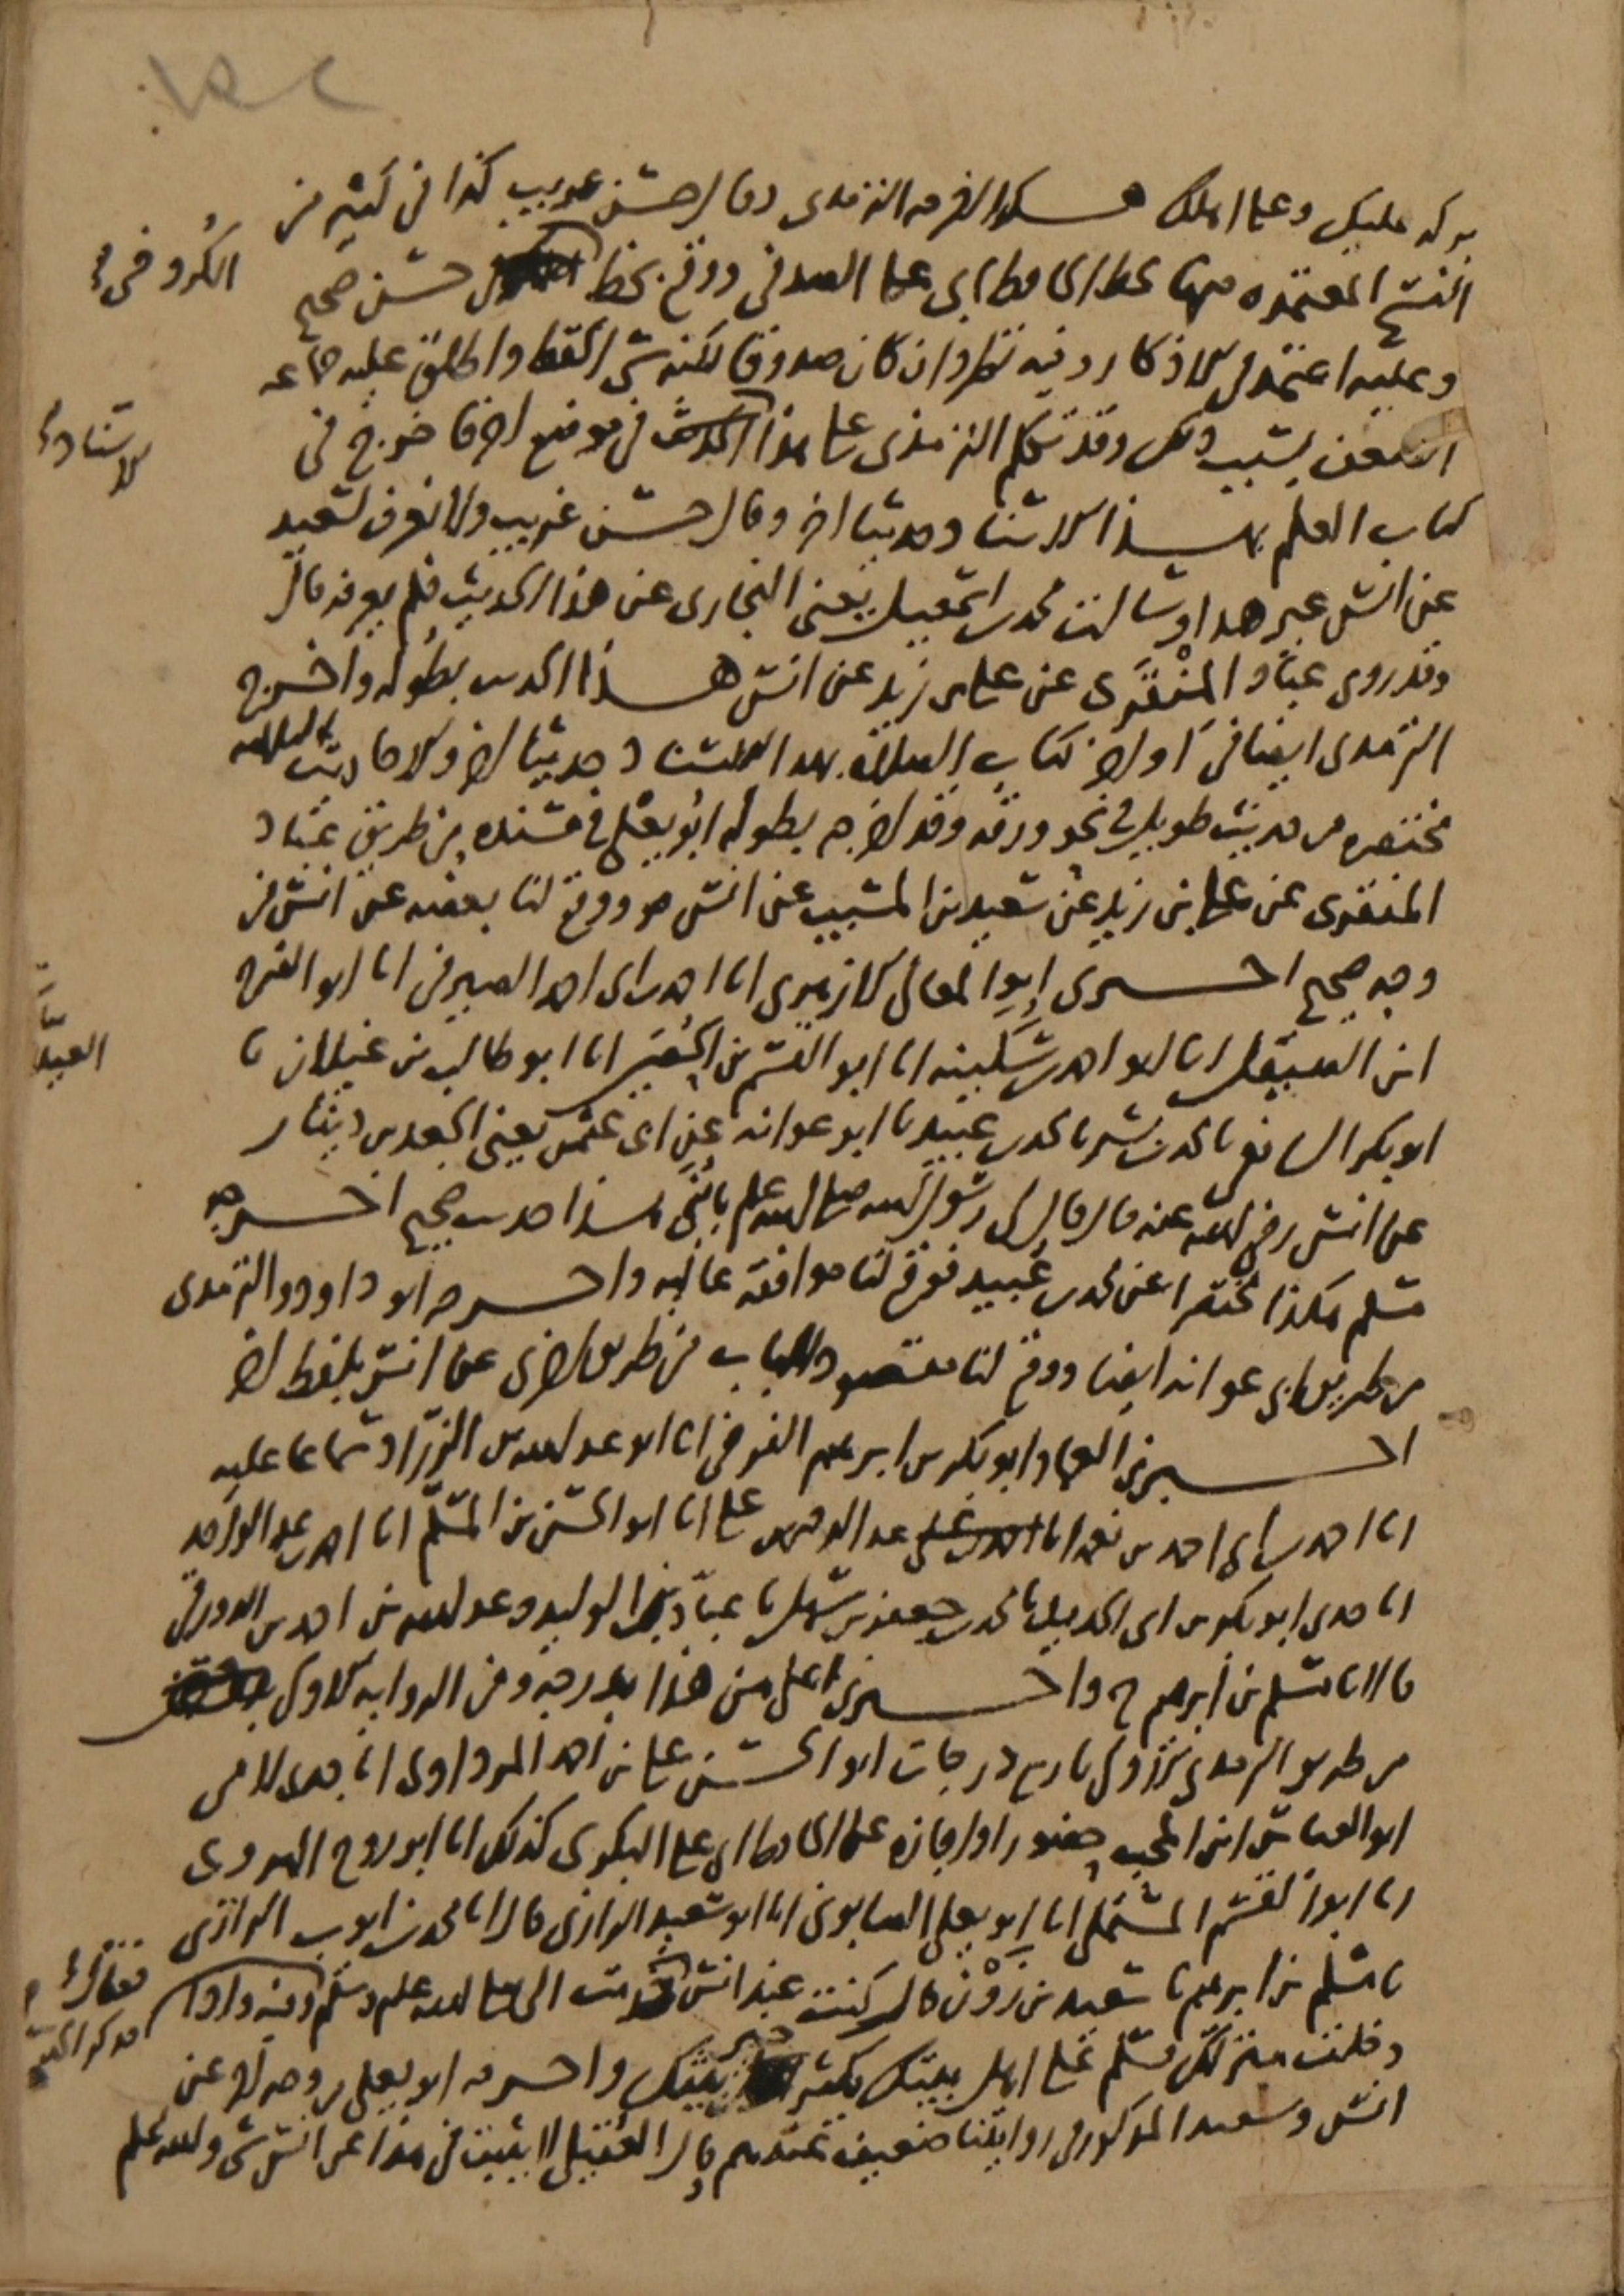 ١٥٢
بركة عليك وعلى اهلك هكذا اخرجه الترمذي وقال حسن غريب كذا في كثير من
النسخ المعتمدة منها بخط الحافظ ابي علي الصدفي ووقع بخط الكروخي حسن صحيح
وعليه اعتمد في الاذكار وفيه نظر وان كان صدوقا لكنه سيئ الحفظ واطلق عليه جماعة
الضعف بسبب ذلك وقد تكلم الترمذي على هذا الاسناد في موضع اخر فاخرج في
كتاب العلم بهذا الاسناد حديثا اخر وقال حسن غريب ولا نعرف لسعيد
عن انس غير هذا وسالت محمد بن اسمعيل يعني البخاري عن هذا الحديث فلم يعرفه قال
وقد روى عباد المنقري عن علي بن زيد عن انس هذا الحديث بطوله واخرج
الترمذي ايضا في اواخر كتاب الصلاة بهذا الاسناد حديثا اخر والاحاديث الثلاثة
مختصرة من حديث طويل في نحو ورقة وقد اخرجه بطوله ابو يعلى في مسنده من طريق عباد
المنقري عن علي بن زيد عن سعيد بن المسيب عن انس ووقع لنا بعضه عن انس من
وجه صحيح اخبرني ابو المعالي الازهري انا احمد بن ابي احمد الصيرفي انا ابو الفرج
ابن الصيقل انا ابو احمد بن سكينة انا ابو القسم بن الحصين انا ابو طالب بن غيلان نا
ابو بكر الشافعي نا محمد بن بشر نا محمد بن عبيد نا ابو عوانة عن ابي عثمن يعني الجعد بن دينار
عن انس رضي الله عنه قال قال لي رسول الله صلى الله عليه وسلم يا بني هذا حديث صحيح اخرجه
مسلم هكذا مختصرا عن محمد بن عبيد فوقع لنا موافقة عالية واخرجه ابو داود والترمذي
من طريق ابي عوانة ايضا ووقع لنا مقصود الباب من طريق اخرى عن انس بلفظ اخر
اخبرني العماد ابو بكر بن ابرهيم الفرضي انا ابو عبد الله بن الزراد سماعا عليه
انا احمد بن ابي احمد بن نعمة انا عبد الرحمن بن علي انا ابو الحسن بن المسلم انا احمد بن عبد الواحد
انا جدي ابو بكر بن ابي الحديد نا محمد بن جعفر بن سهل نا عباد بن الوليد وعبد الله بن احمد بن الدورقي
قالا نا مسلم بن ابرهيم ح واخبرني اعلى من هذا بدرجة ومن الرواية الاولى
من طريق الترمذي بنزول باربع درجات ابو الحسن علي بن احمد المرداوي انا جدي لامي
ابو العباس ابن المحب حضورا واجازة على الحافظ ابي علي البكري كذلك انا ابو روح الهروي
انا ابو القسم المستملي انا ابو يعلى الصابوني انا ابو سعيد الرازي قال انا محمد بن ايوب الرازي
نا مسلم بن ابرهيم نا سعيد بن زون قال كنت عند انس فقال خدمت النبي صلى الله عليه وسلم وفيه واذا
دخلت منزلك فسلم على اهل بيتك يكثر خير بيتك واخرجه ابو يعلى من وجه اخر عن
انس وسعيد المذكور في روايتنا ضعيف عندهم قال العقيلي لا يثبت في هذا عن انس شي والله اعلم
الكروخي
الاسناد
فقال
فذكر الحديث